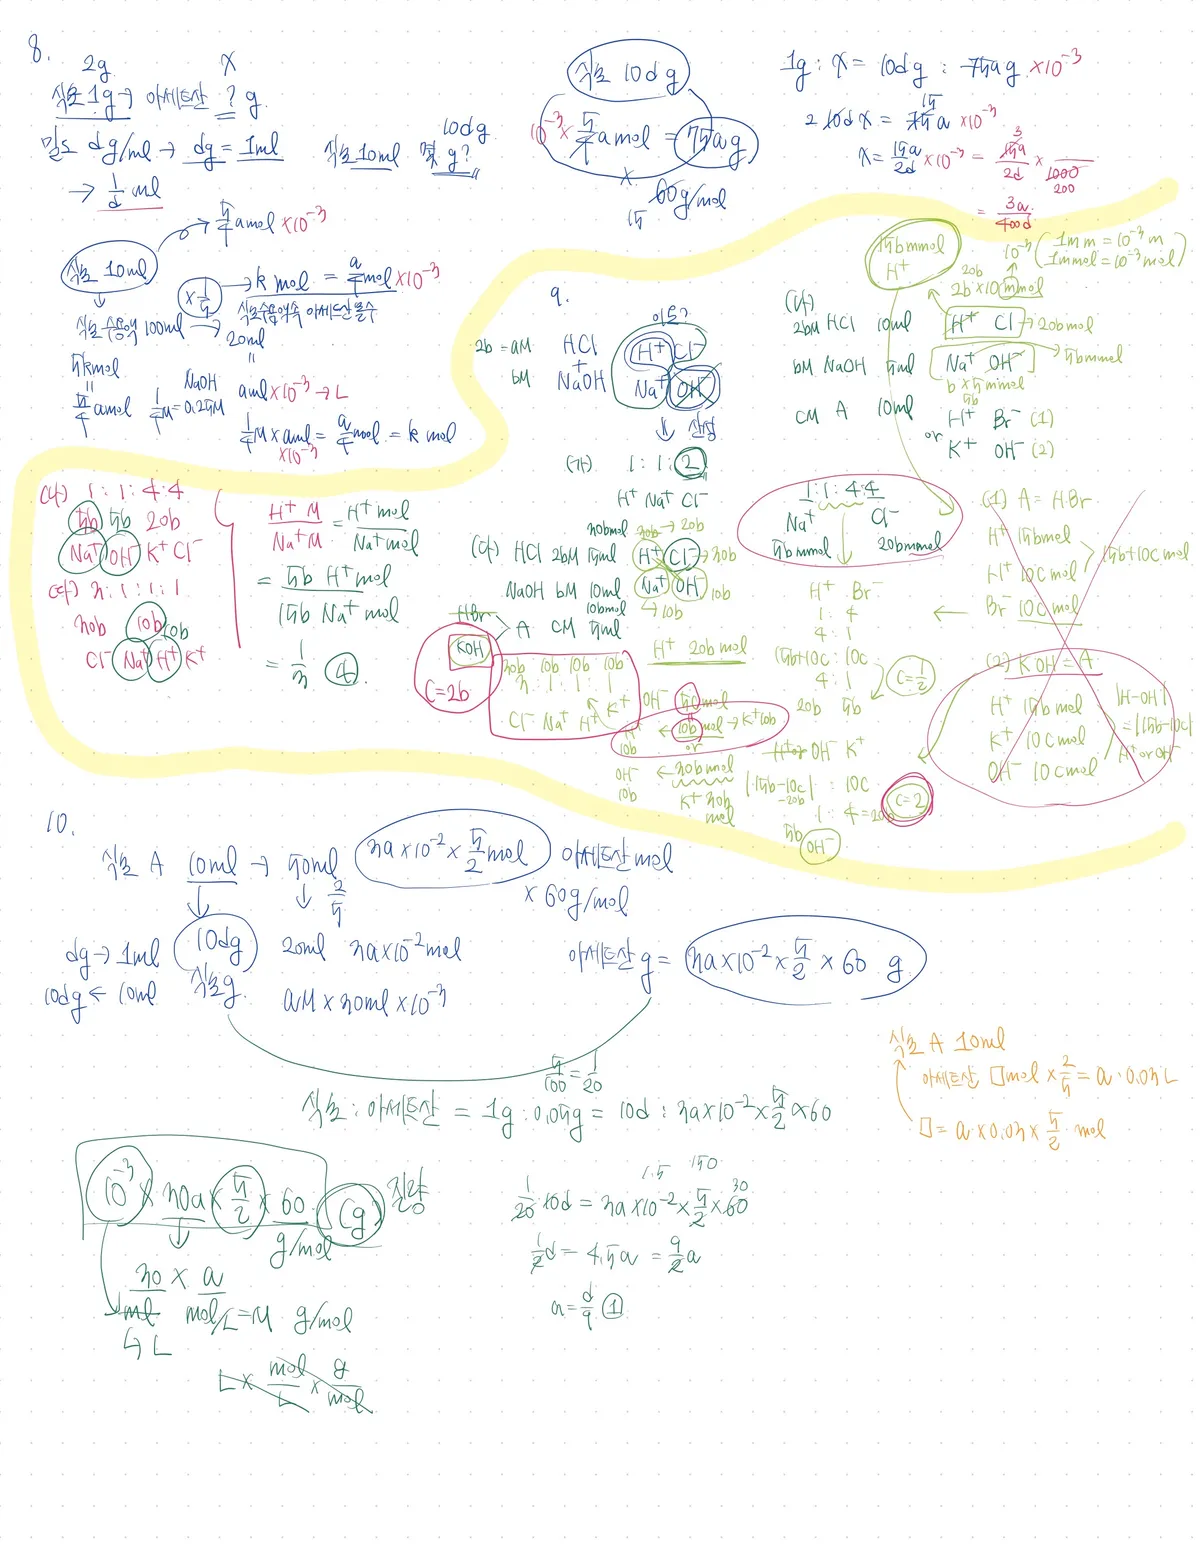 8.
2g x
식초 1g → 아세트산 ? g.
밀도 dg/ml → dg = 1ml
→ 1/d ml
식초 10ml 몇 g?
10dg
식초 10dg
10⁻³ × 5/4 a mol = 75ag
×
15 60g/mol
1g : x = 10dg : 75ag ×10⁻³
2 10dx = 75a ×10⁻³
15
x = 15a/2d ×10⁻³ = 15a/2d × 1/1000
3
200
= 3a/400d
→ 5/4 amol ×10⁻³
식초 10ml
×1/5 → k mol = a/4 mol ×10⁻³
식초수용액속 아세트산 몰수
식초 수용액 100ml → 20ml
5kmol
=
5/4 amol
NaOH
1/4 M = 0.25M
aml ×10⁻³ → L
1/4 M × aml = a/4 mol = k mol
×10⁻³
9.
2b = aM HCl
+
bM NaOH
이온?
H⁺ Cl⁻
Na⁺ OH⁻
⇓ 산성
(가) 1 : 1 : 2
H⁺ Na⁺ Cl⁻
(나)
2bM HCl 10ml
bM NaOH 5ml
cM A 10ml
15b mmol
H⁺
10⁻³ (1mm = 10⁻³ m
1mmol = 10⁻³ mol)
20b
2b×10 mmol
H⁺ Cl⁻ → 20bmol
Na⁺ OH⁻ → 5bmmol
b × 5 mmol
5b
H⁺ Br⁻ (1)
or K⁺ OH⁻ (2)
1 : 1 : 4 : 4
Na⁺ Cl⁻
5b mmol 20bmmol
H⁺ Br⁻
1 : 4
4 : 1
15b+10c : 10c
4 : 1
20b 5b
c = 1/2
H⁺or OH⁻ K⁺
|15b-10c| : 10c
-20b
1 : 4 = 20b
5b
OH⁻
c=2
(1) A = HBr
H⁺ 15bmol
H⁺ 10c mol
15b+10c mol
Br⁻ 10c mol
(2) KOH = A
H⁺ 15b mol
K⁺ 10c mol
OH⁻ 10c mol
|H-OH|
= |15b-10c|
H⁺ or OH⁻
(나) 1 : 1 : 4 : 4
5b 5b 20b
Na⁺ OH⁻ K⁺ Cl⁻
(다) 3 : 1 : 1 : 1
30b 10b 10b
Cl⁻ Na⁺ H⁺ K⁺
H⁺ M/Na⁺ M = H⁺ mol/Na⁺ mol
= 5b H⁺ mol/15b Na⁺ mol
= 1/3 ④.
(다) HCl 2bM 15ml
30bmol 30b → 20b
H⁺ Cl⁻ → 30b
NaOH bM 10ml
10bmol
Na⁺ OH⁻ 10b
→ 10b
HBr
KOH
A cM 5ml
c=2b
H⁺ 20b mol
30b 10b 10b 10b
3 : 1 : 1 : 1
Cl⁻ Na⁺ H⁺ K⁺
OH⁻ 5c mol
H⁺ ← 10b mol → K⁺ 10b
10b or
OH⁻ ← 30b mol
10b K⁺ 30b
mol
10.
식초 A 10ml → 50ml
3a×10⁻² × 5/2 mol 아세트산 mol
↓ 2/5
× 60g/mol
dg → 1ml 10dg 20ml 3a×10⁻² mol
10dg ← 10ml 식초g. aM × 30ml × 10⁻³
아세트산 g = 3a×10⁻² × 5/2 × 60 g
5/100 = 1/20
식초 : 아세트산 = 1g : 0.05g = 10d : 3a×10⁻² × 5/2 × 60
식초 A 10ml
아세트산 □mol × 2/5 = a · 0.03 L
□ = a × 0.03 × 5/2 mol
10⁻³ × 30a × 5/2 × 60 (g) 질량
g/mol
30 × a
ml mol/L = M g/mol
↳ L
L × mol/L × g/mol
1.5 150 30
1/20 · 10d = 3a×10⁻² × 5/2 × 60
1/2 d = 4.5a = 9/2 a
a = d/9 ①